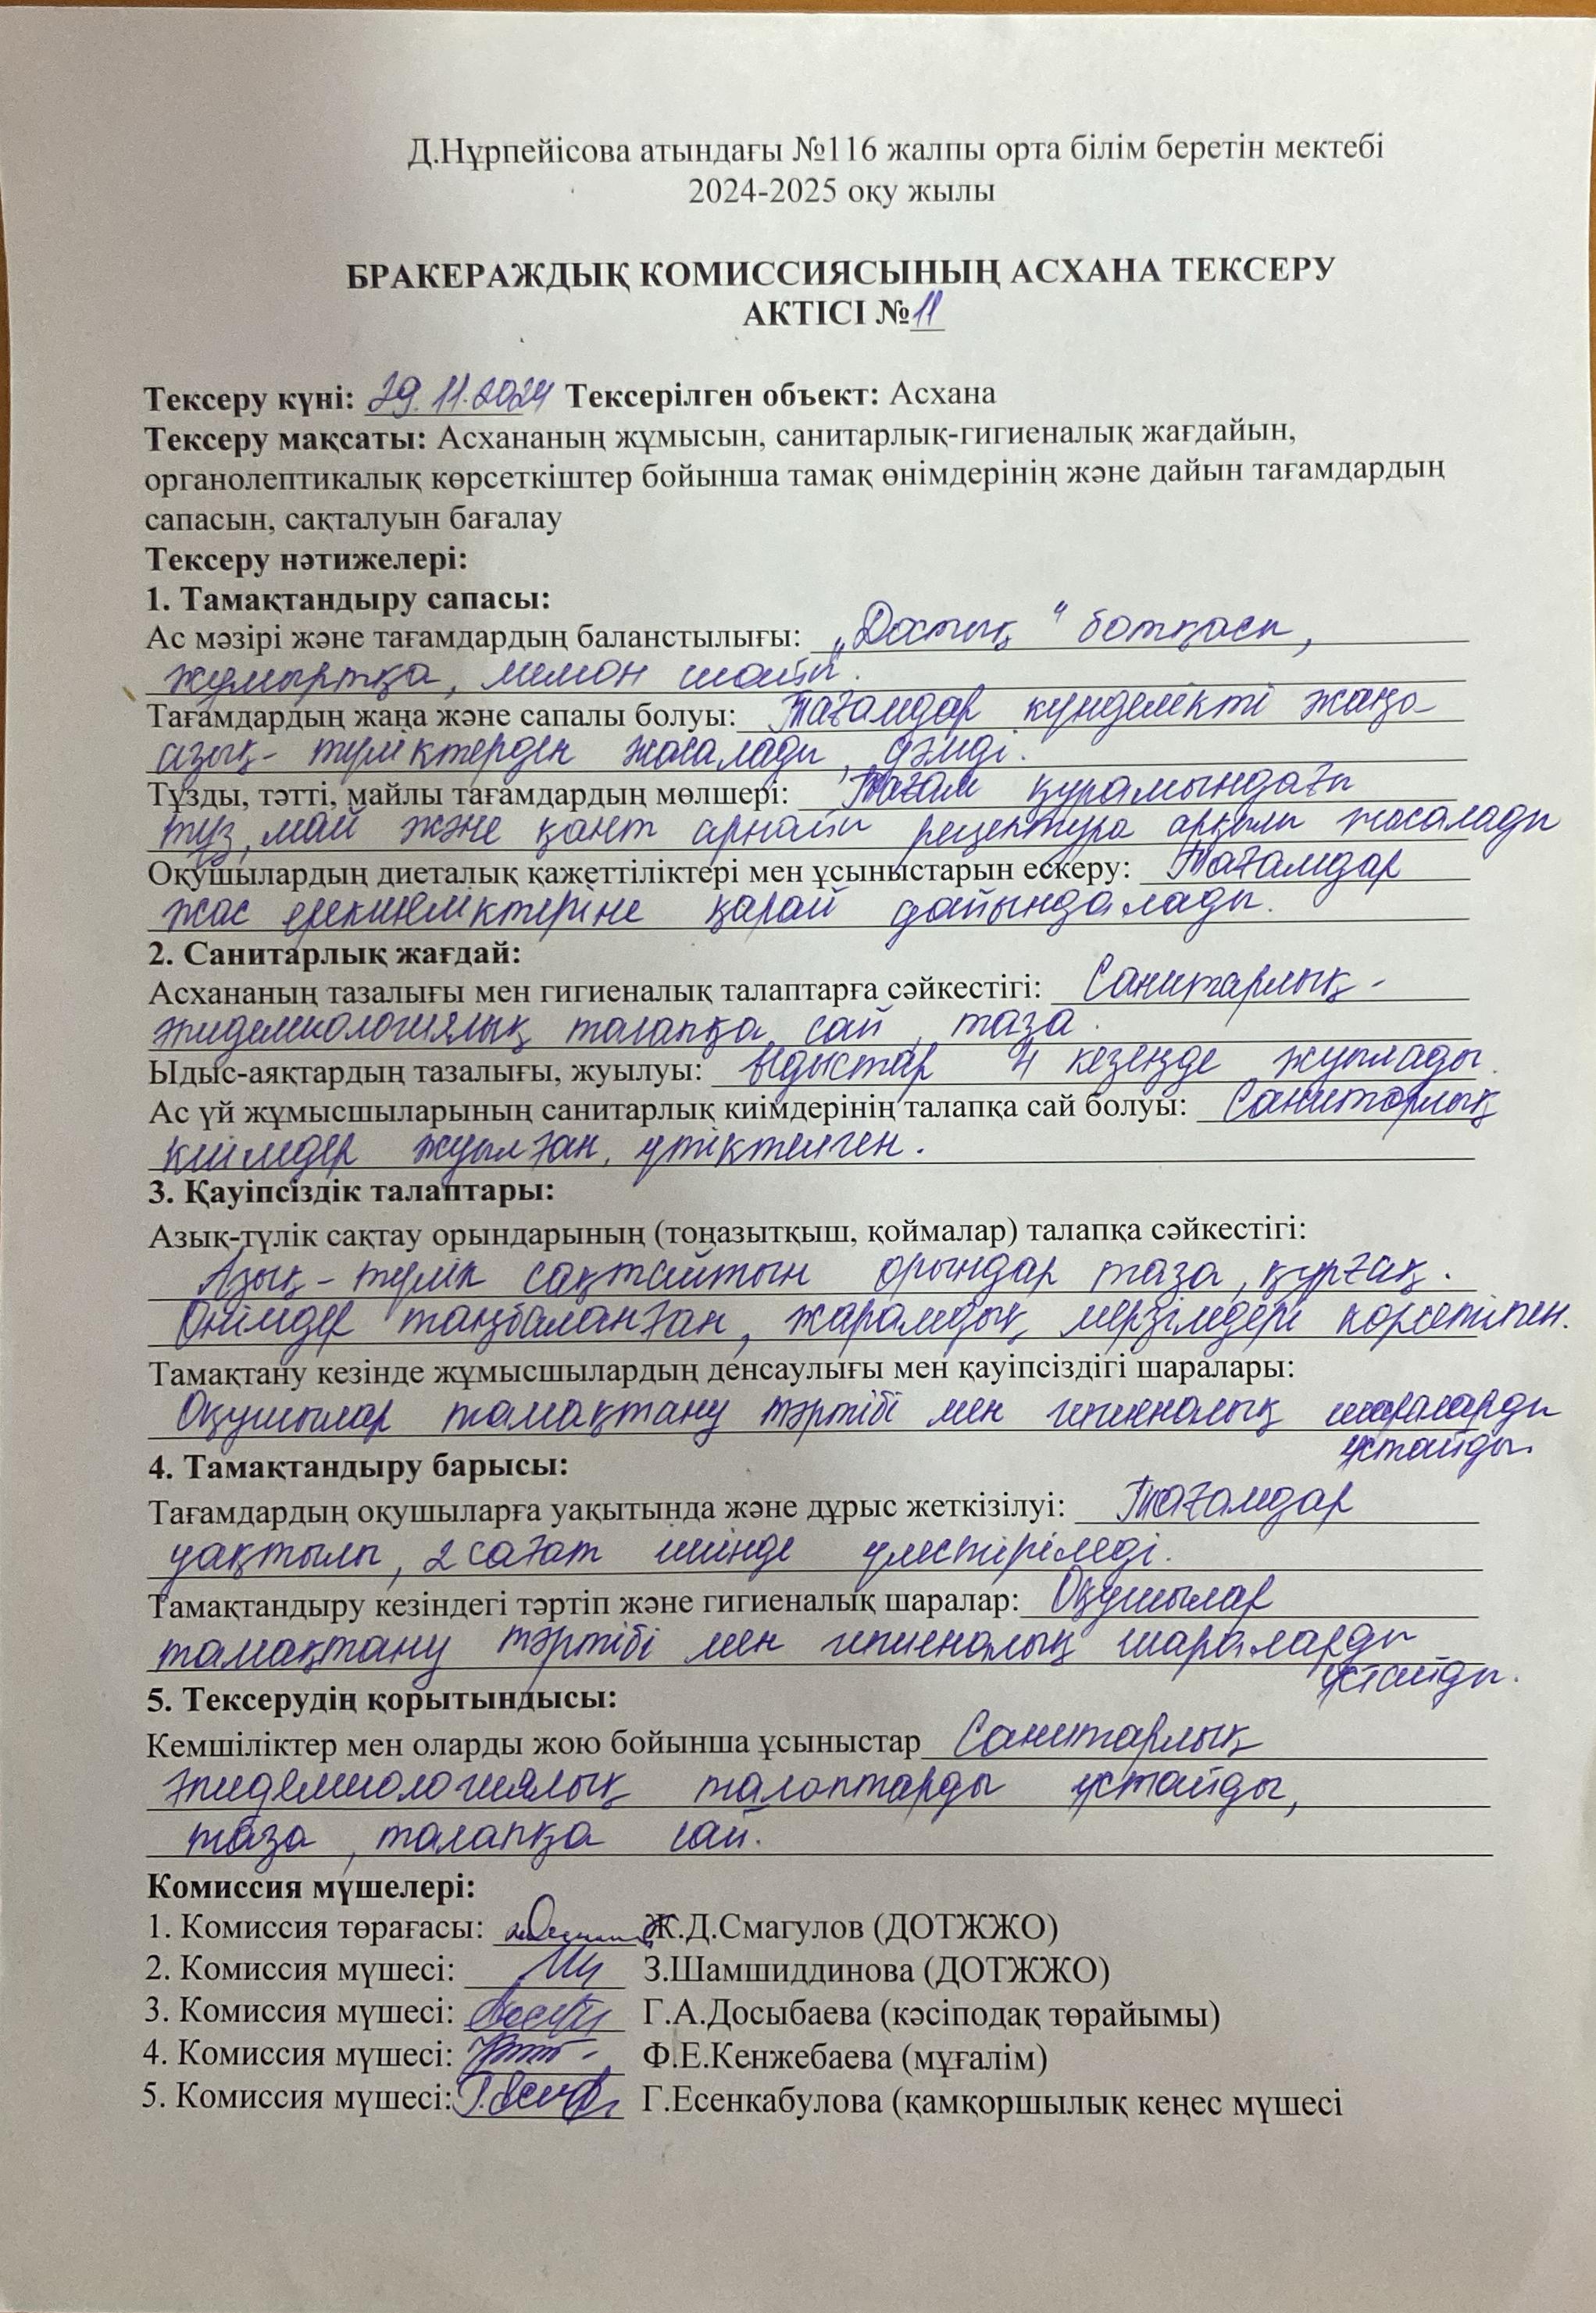 Д.Нұрпейісова атындағы №116 жалпы орта білім беретін мектебі
2024-2025 оқу жылы
БРАКЕРАЖДЫҚ КОМИССИЯСЫНЫҢ АСХАНА ТЕКСЕРУ
АКТІСІ №11
Тексеру күні: 29.11.2024 Тексерілген объект: Асхана
Тексеру мақсаты: Асхананың жұмысын, санитарлық-гигиеналық жағдайын,
органолептикалық көрсеткіштер бойынша тамақ өнімдерінің және дайын тағамдардың
сапасын, сақталуын бағалау
Тексеру нәтижелері:
1. Тамақтандыру сапасы:
Ас мәзірі және тағамдардың баланстылығы: „Достық“ ботқасы,
жұмыртқа, лимон шайы.
Тағамдардың жаңа және сапалы болуы: Тағамдар күнделікті жаңа
азық-түліктерден жасалады, дәмді.
Тұзды, тәтті, майлы тағамдардың мөлшері: Тағам құрамындағы
тұз, май және қант арнайы рецептура арқылы жасалады
Оқушылардың диеталық қажеттіліктері мен ұсыныстарын ескеру: Тағамдар
жас ерекшеліктеріне қарай дайындалады.
2. Санитарлық жағдай:
Асхананың тазалығы мен гигиеналық талаптарға сәйкестігі: Санитарлық-
эпидемиологиялық талапқа сай, таза.
Ыдыс-аяқтардың тазалығы, жуылуы: Ыдыстар 4 кезеңде жуылады.
Ас үй жұмысшыларының санитарлық киімдерінің талапқа сай болуы: Санитарлық
киімдер жуылған, үтіктелген.
3. Қауіпсіздік талаптары:
Азық-түлік сақтау орындарының (тоңазытқыш, қоймалар) талапқа сәйкестігі:
Азық-түлік сақтайтын орындар таза, құрғақ.
Өнімдер таңбаланған, жарамдық мерзімдері көрсетілген.
Тамақтану кезінде жұмысшылардың денсаулығы мен қауіпсіздігі шаралары:
Оқушылар тамақтану тәртібі мен гигиеналық шараларды
ұстайды.
4. Тамақтандыру барысы:
Тағамдардың оқушыларға уақытында және дұрыс жеткізілуі: Тағамдар
уақтылы, 2 сағат ішінде үлестіріледі.
Тамақтандыру кезіндегі тәртіп және гигиеналық шаралар: Оқушылар
тамақтану тәртібі мен гигиеналық шараларды
ұстайды.
5. Тексерудің қорытындысы:
Кемшіліктер мен оларды жою бойынша ұсыныстар Санитарлық
эпидемиологиялық талаптарды ұстайды,
таза, талапқа сай.
Комиссия мүшелері:
1. Комиссия төрағасы: Ж.Д.Смагулов (ДОТЖЖО)
2. Комиссия мүшесі: З.Шамшиддинова (ДОТЖЖО)
3. Комиссия мүшесі: Г.А.Досыбаева (кәсіподақ төрайымы)
4. Комиссия мүшесі: Ф.Е.Кенжебаева (мұғалім)
5. Комиссия мүшесі: Г.Есенкабулова (қамқоршылық кеңес мүшесі